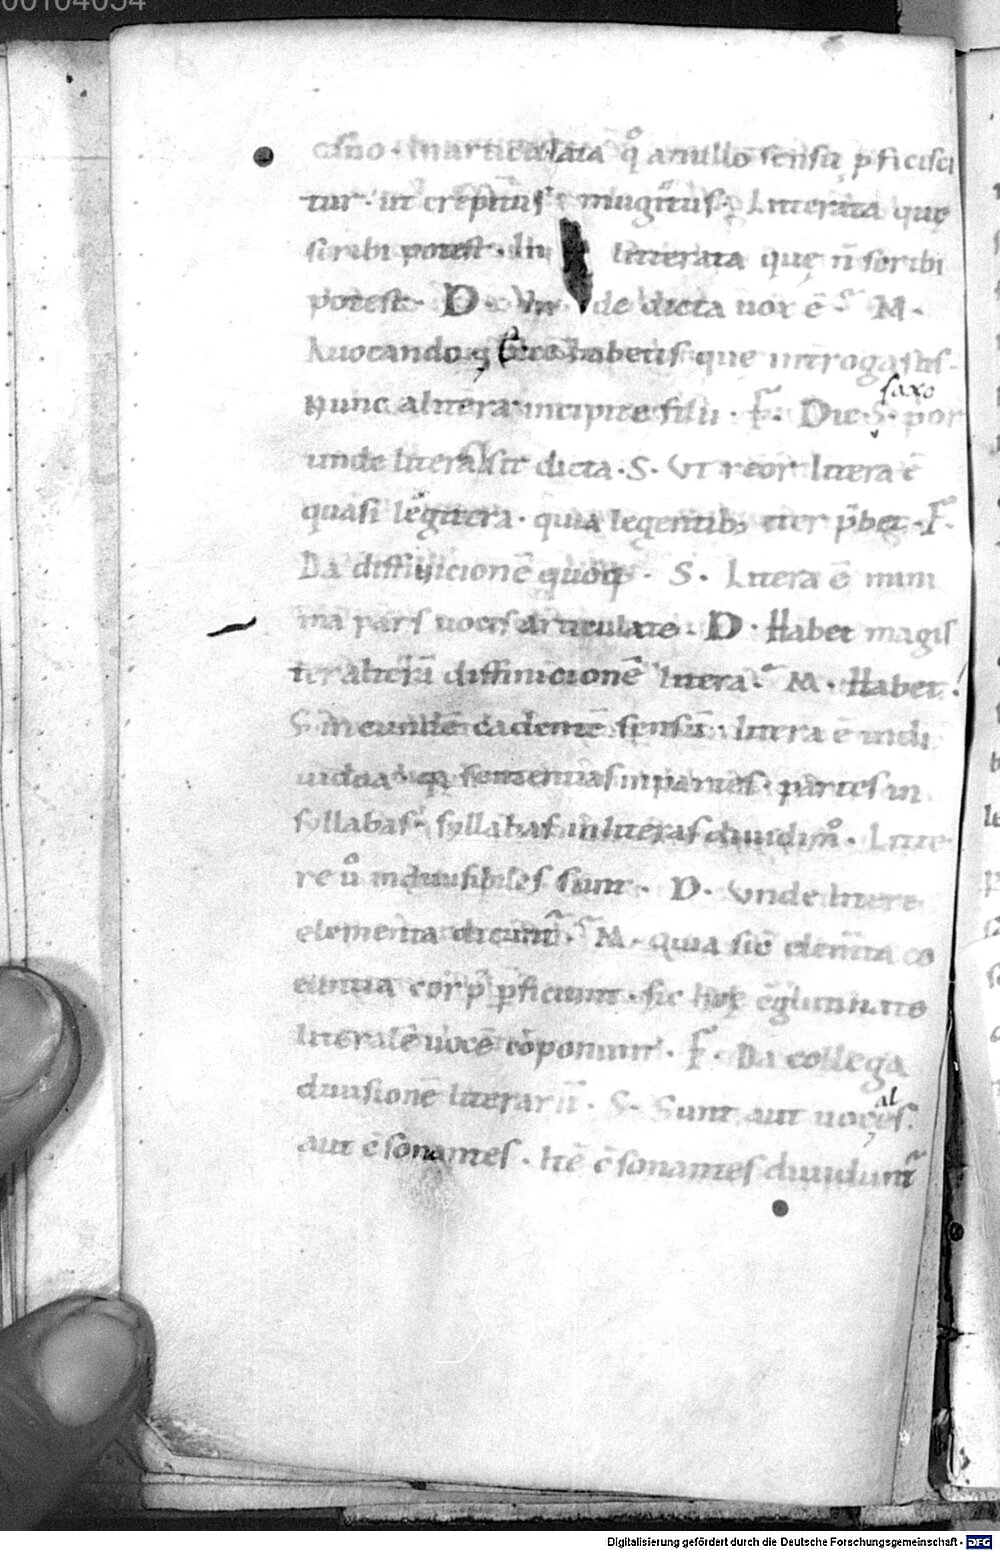 00104054
cano · Inarticulata q° a nullo sensu p ficisci
tur · ut crepitus mugitus · Litterata quę
scribi potest · In litterata quę n̄ scribi
potest · D · Vn de dicta uox ē · M ·
A uocando · habetis que introgastis ·
saxo
nunc a litera incipite filii · F · Dic · S · por
unde litera sit dicta · S · Vt reor litera ē
quasi legitera · quia legentib; iter p̄bet · F ·
Da diffinicionē quoq; · S · Litera ē mini
ma pars uocis articulatę · D · Habet magis
ter aliciā diffinicionē litera · M · Habet ·
S in eundē cadentē sensū · litera ē indi
uidua · q sententias in partes · partes in
syllabas · syllabas in literas diuidim° · Litte
re ů indiuisibiles sunt · D · Vnde litere
elementa dicunt · M · Quia sic elem̄ta co
euntia corp p̄ficiunt · sic ēglutinatio
literalē uocē cōponunt · F · Da collega
diuisionē literarū · S · Sunt aut uoces ·
al
aut c̄sonantes · Itē c̄sonantes diuidunt
Digitalisierung gefördert durch die Deutsche Forschungsgemeinschaft - DFG